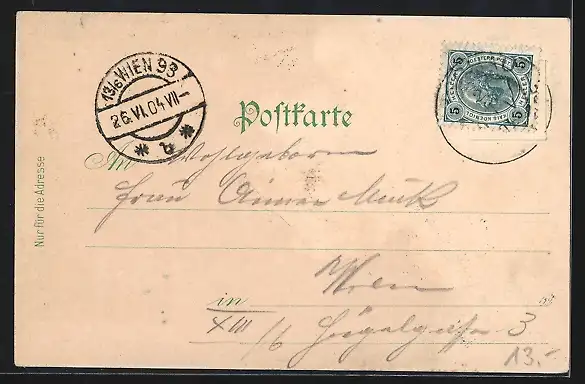 13/6 WIEN 93
26.VI.04 VII-
* a *
5 5
5 5
Postkarte
Nur für die Adresse
An Wohlgeboren
Frau
Wien
in
XIII/6 Hügelgasse 3
13.-